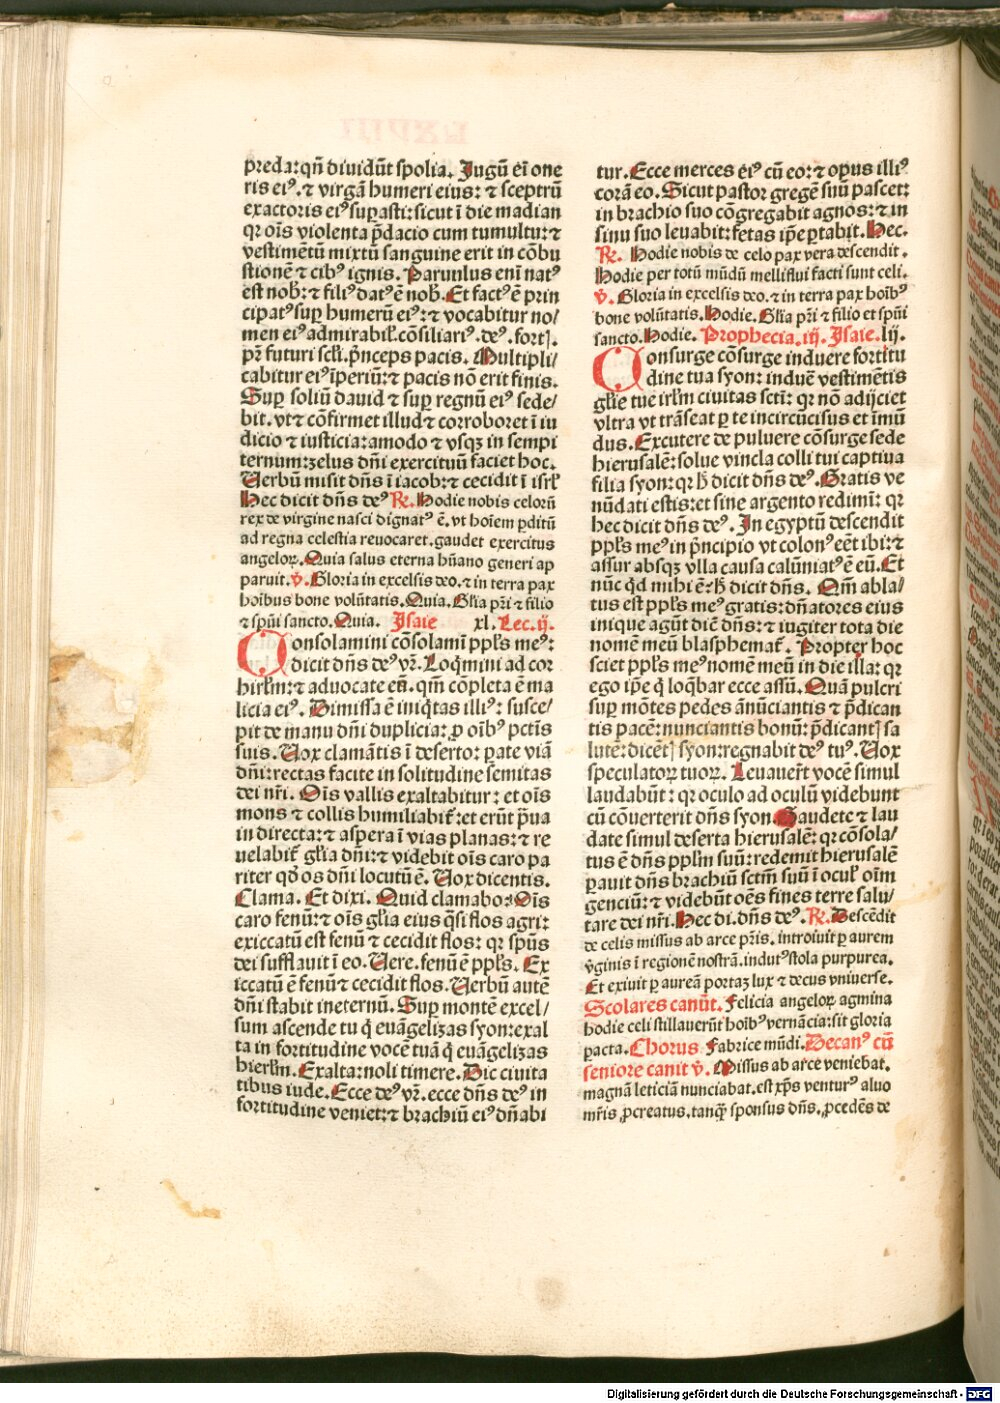 preda: qn̄ diuidūt spolia. Jugū ei one
ris ei⁹. ⁊ virgā humeri eius: ⁊ sceptrū
exactoris ei⁹ supasti: sicut ī die madian
qꝛ oīs violenta p̄dacio cum tumultu: ⁊
vestimētū mixtū sanguine erit in cōbu
stionē ⁊ cib⁹ ignis. Paruulus enī nat⁹
est nob̄: ⁊ fili⁹ dat⁹ ē nob̄. Et fact⁹ ē prin
cipat⁹ suꝑ humerū ei⁹: ⁊ vocabitur no/
men ei⁹ admirabil̄. cōsiliari⁹. de⁹. fort̄.
pr̄ futuri scl̄i. p̄nceps pacis. Multipli/
cabitur ei⁹ īperiū: ⁊ pacis nō erit finis.
Suꝑ soliū dauid ⁊ suꝑ regnū ei⁹ sede/
bit. vt ⁊ cōfirmet illud ⁊ corroboret ī iu
dicio ⁊ iusticia: amodo ⁊ vsqꝫ in sempi
ternum: zelus dn̄i exercituū faciet hoc.
Uerbū misit dn̄s ī iacob: ⁊ cecidit ī isrl̄
Hec dicit dn̄s de⁹ R̄. Hodie nobis celorū
rex de virgine nasci dignat⁹ ē. vt hoīem ꝑditū
ad regna celestia reuocaret. gaudet exercitus
angeloꝝ. Quia salus eterna hūano generi ap
paruit. v̄. Gloria in excelsis deo. ⁊ in terra pax
hoībus bone volūtatis. Quia. Gl̄ia pr̄i ⁊ filio
⁊ spūi sancto. Quia. Isaie xl. Lec. ij.
Consolamini cōsolamī ppl̄s me⁹:
dicit dn̄s de⁹ vr̄. Loq̄mini ad cor
hirl̄m: ⁊ aduocate eū. qm̄ cōpleta ē ma
licia ei⁹. Dimissa ē iniq̄tas illi⁹: susce/
pit de manu dn̄i duplicia: ꝓ oīb⁹ pctīs
suis. Uox clamātis ī deserto: ꝑate viā
dn̄i: rectas facite in solitudine semitas
dei nr̄i. Oīs vallis exaltabitur: et oīs
mons ⁊ collis humiliabit᷑: et erūt p̄ua
in directa: ⁊ aspera ī vias planas: ⁊ re
uelabit᷑ gl̄ia dn̄i: ⁊ videbit oīs caro pa
riter qd̄ os dn̄i locutū ē. Uox dicentis.
Clama. Et dixi. Quid clamabo: Oīs
caro fenū: ⁊ oīs gl̄ia eius q̄si flos agri:
exiccatū est fenū ⁊ cecidit flos: qꝛ spūs
dei sufflauit ī eo. Uere. fenū ē ppl̄s. Ex
iccatū ē fenū ⁊ cecidit flos. Uerbū autē
dn̄i stabit ineternū. Suꝑ montē excel/
sum ascende tu q̄ euāgelizas syon: exal
ta in fortitudine vocē tuā q̄ euāgelizas
hierl̄m. Exalta: noli timere. Dic ciuita
tibus iude. Ecce de⁹ vr̄. ecce dn̄s de⁹ in
fortitudine veniet: ⁊ brachiū ei⁹ dn̄abi
tur. Ecce merces ei⁹ cū eo: ⁊ opus illi⁹
corā eo. Sicut pastor gregē suū pascet:
in brachio suo cōgregabit agnos: ⁊ in
sinu suo leuabit: fetas ip̄e portabit. Hec.
R̄. Hodie nobis de celo pax vera descendit.
Hodie per totū mūdū melliflui facti sunt celi.
v̄. Gloria in excelsis deo. ⁊ in terra pax hoīb⁹
bone volūtatis. Hodie. Gl̄ia pr̄i ⁊ filio et spūi
sancto. Hodie. Prophecia. iij. Isaie. lij.
Consurge cōsurge induere fortitu
dine tua syon: induē vestimētis
gl̄ie tue irl̄m ciuitas sctī: qꝛ nō adijciet
vltra vt trāseat ꝑ te incircūcisus et īmū
dus. Excutere de puluere cōsurge sede
hierusalē: solue vincla colli tui captiua
filia syon: qꝛ h̄ dicit dn̄s de⁹. Gratis ve
nūdati estis: et sine argento redimī: qꝛ
hec dicit dn̄s de⁹. In egyptū descendit
ppl̄s me⁹ in p̄ncipio vt colon⁹ eēt ibi: ⁊
assur absqꝫ vlla causa calūniat⁹ ē eū. Et
nūc qd mihi ē: h̄ dicit dn̄s. Qm̄ abla/
tus est ppl̄s me⁹ gratis: dn̄atores eius
inique agūt dic̄ dn̄s: ⁊ iugiter tota die
nomē meū blasphemat᷑. Propter hoc
sciet ppl̄s me⁹ nomē meū in die illa: qꝛ
ego ip̄e q̄ loq̄bar ecce assū. Quā pulcri
suꝑ mōtes pedes ānūciantis ⁊ p̄dican
tis pacē: nunciantis bonū: p̄dicant̄ sa
lutē: dicēt̄ syon: regnabit de⁹ tu⁹. Uox
speculatoꝝ tuoꝝ. Leuauer̄t vocē simul
laudabūt: qꝛ oculo ad oculū videbunt
cū cōuerterit dn̄s syon. Gaudete ⁊ lau
date simul deserta hierusalē: qꝛ cōsola/
tus ē dn̄s ppl̄m suū: redemit hierusalē
ꝑauit dn̄s brachiū sctm̄ suū ī ocul̄ oīm
genciū: ⁊ videbūt oēs fines terre salu/
tare dei nr̄i. Hec di. dn̄s de⁹. R̄. Descēdit
de celis missus ab arce pr̄is. introiuit ꝑ aurem
v̄ginis ī regionē nostrā. indut⁹ stola purpurea.
Et exiuit ꝑ aureā portaꝫ lux ⁊ decus vniuerse.
Scolares canūt. Felicia angeloꝝ agmina
hodie celi stillauerūt hoīb⁹ vernācia: sit gloria
pacta. Chorus Fabrice mūdi. Decan⁹ cū
seniore canit v̄. Missus ab arce veniebat.
magnā leticiā nunciabat. est xp̄s ventur⁹ aluo
mr̄is ꝓcreatus. tanqꝫ sponsus dn̄s ꝓcedēs de
Digitalisierung gefördert durch die Deutsche Forschungsgemeinschaft - DFG